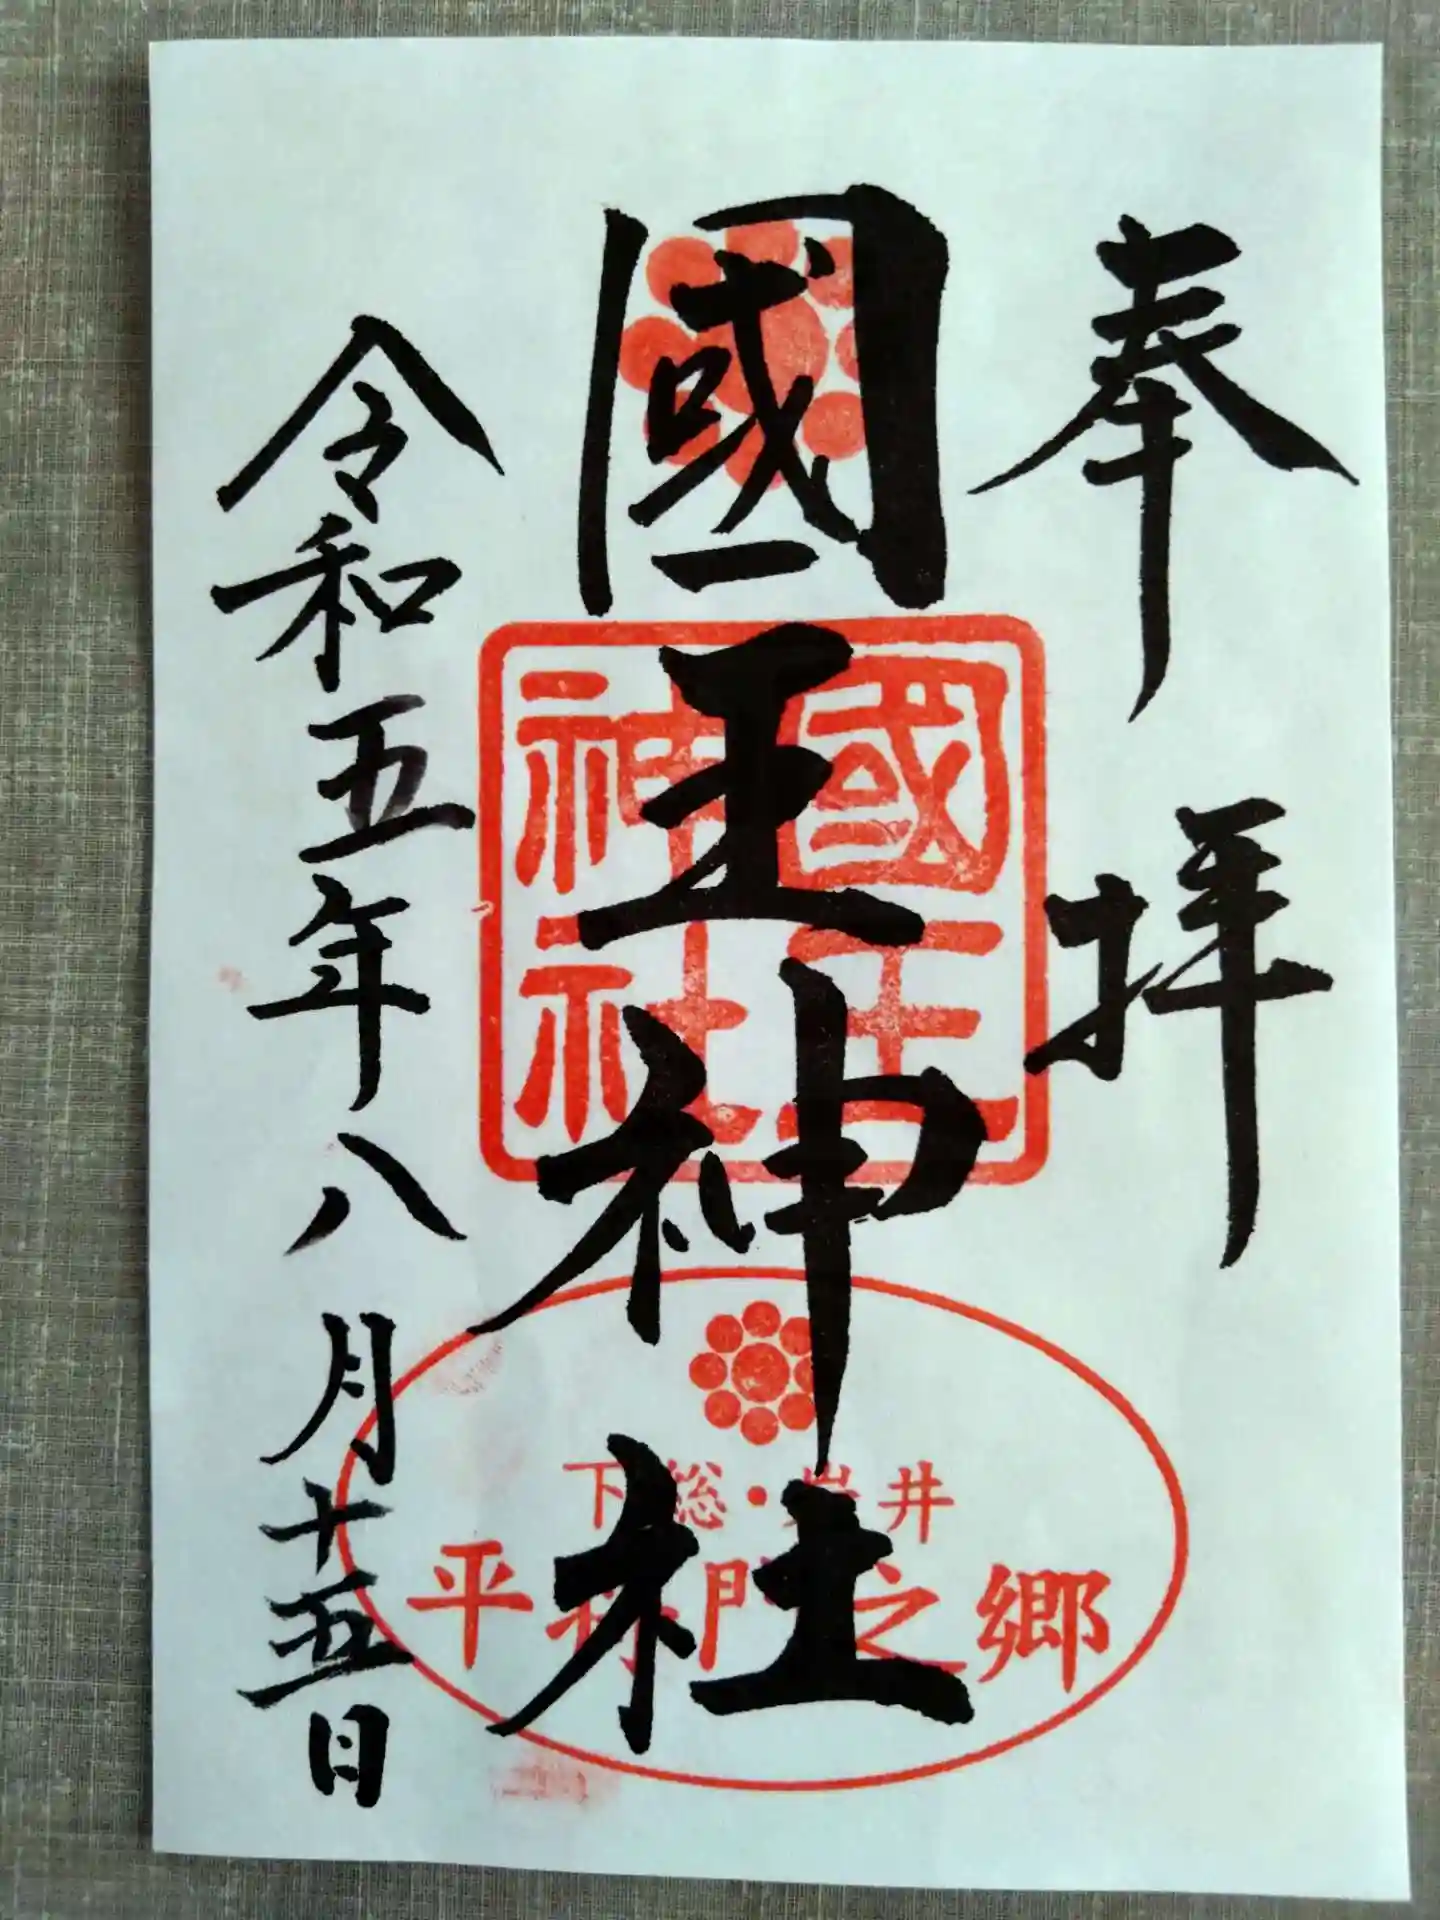 奉拝
國王神社
令和五年八月十五日
國王
神社
下総・岩井
平将門之郷